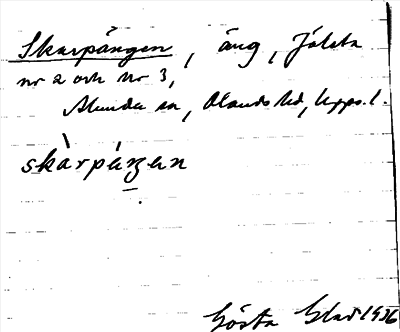 Skarpängen, äng, Jälsta
nr 2 och nr 3,
Almunda sn, Olands hd, Upps. l.
skàrpáŋen
Gösta Glad 1936